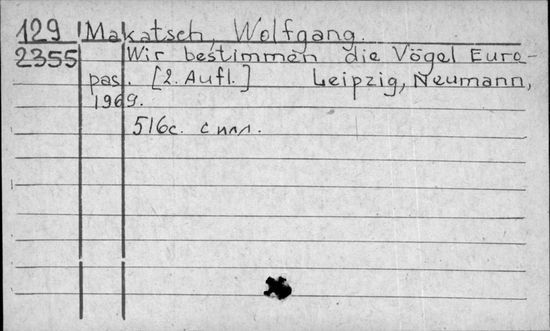 129 Makatsch, Wolfgang.
2355 Wir bestimmen die Vögel Euro-
pas. [2. Aufl.] Leipzig, Neumann,
1969.
516с. с илл.